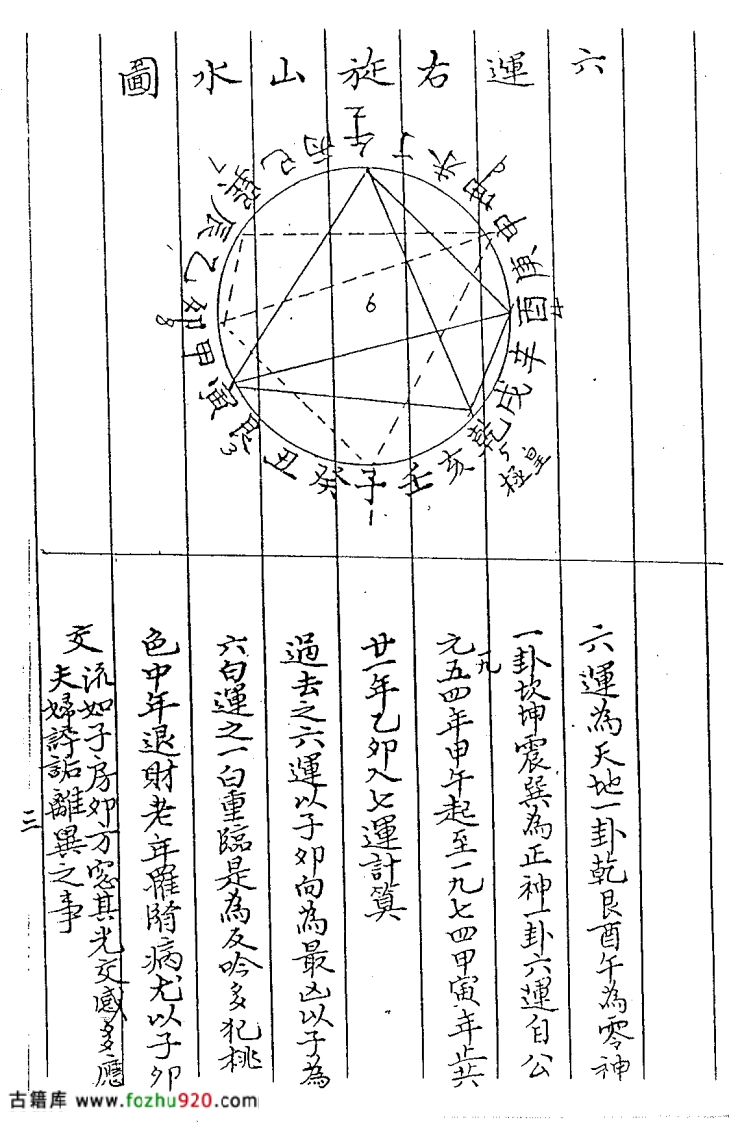 六運右旋山水圖
午
丁
未
坤
申
庚
酉
辛
戌
乾
亥
壬
子
癸
丑
艮
寅
甲
卯
乙
辰
巽
巳
丙
6
7
8
3
1
5
皇極
六運為天地一卦乾艮酉午為零神
一卦坎坤震巽為正神一卦六運自公
元一九五四年甲午起至一九七四甲寅年止共
廿一年乙卯入七運計算
過去之六運以子卯向為最凶以子為
六白運之一白重臨是為反吟多犯桃
色中年退財老年罹隋病尤以子卯
交流如子房卯方窓其光交感多應
夫婦誶詬離異之事
三
古籍库 www.fozhu920.com